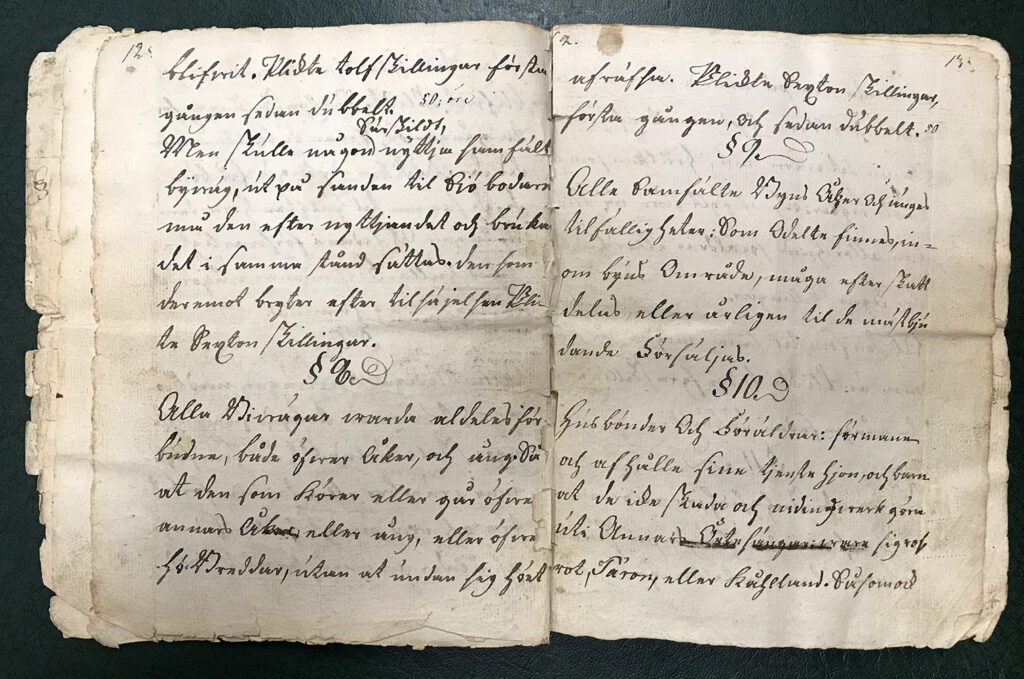 12.
blifwit. Plikte tolf skillingar första
gången sedan dubbelt. 50: öre
Särskildt,
Men skulle någon nyttja samfält
byväg, ut på sanden til Sjö bodarn
må den efter nyttjandet och bruka
det i samma stånd sättas. den som
deremot bryter efter tilsäjelsen Pli
te Sexton skillingar.
§ 8.
Alla Vidvägar warda aldeles för-
budne, både öfwer Åker, och äng. Så
at den som Körer eller går öfwer
annars Åker, eller äng, eller öfwer
hö-Breddar, utan at undan sig höet
2. 13.
afräfsa. Plikte Sexton skillingar,
första gången, och sedan dubbelt. 50
§ 9.
Alle Samfälte Byns Åker Och ängs
tilfälligheter: Som Odelte finnes, in-
om byns Område, måga efter skatt
delas eller årligen til de mästbju
dande Försäljas.
§ 10.
Husbönder Och Föräldrar: förmane
och afhålle sine tjenste hjon, och barn
at de icke skada och nidingswerk göra
uti Annars
rot, Täror, eller Kåhlland. Såsom ock